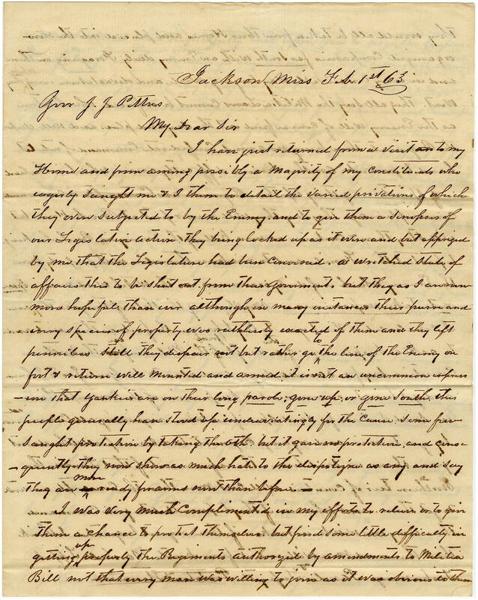 Jackson, Miss Feb. 1st 63
Govr J. J. Pettus
My Dear Sir
I have just returned from a visit to my
Home and from among possibly a Majority of my Constituents who
eagerly sought me & I them to detail the varied privations of which
they even subjected to by the Enemy and to give them a synopsis of
our Legislative action they being locked up as it were and but apprised
by me that the Legislature had been convened. a wretched State of
affairs this to be shut out from their Government. but they as I am now
more hopeful than ever although in many instances their purse and
every species of property was ruthlessly exacted of them and they left
penniless still they despair not but rather go to the line of the Enemy on
foot & return well Mounted and armed it is not an uncommon
in that Yankies are on their long parole, gone up, or gone South. the
people generally have stood up for the Cause some few
sought protection by taking the oath but it gave no protection, and conse-
quently they now show as much hate to the as any and say
they are more ready now than before —
I was very much Complimented in my efforts to relieve or to give
them a chance to protect themselves but find some little difficulty in
getting up properly the Regiments authorized by amendments to Militia
Bill not that every man was willing to join as it was obvious to them